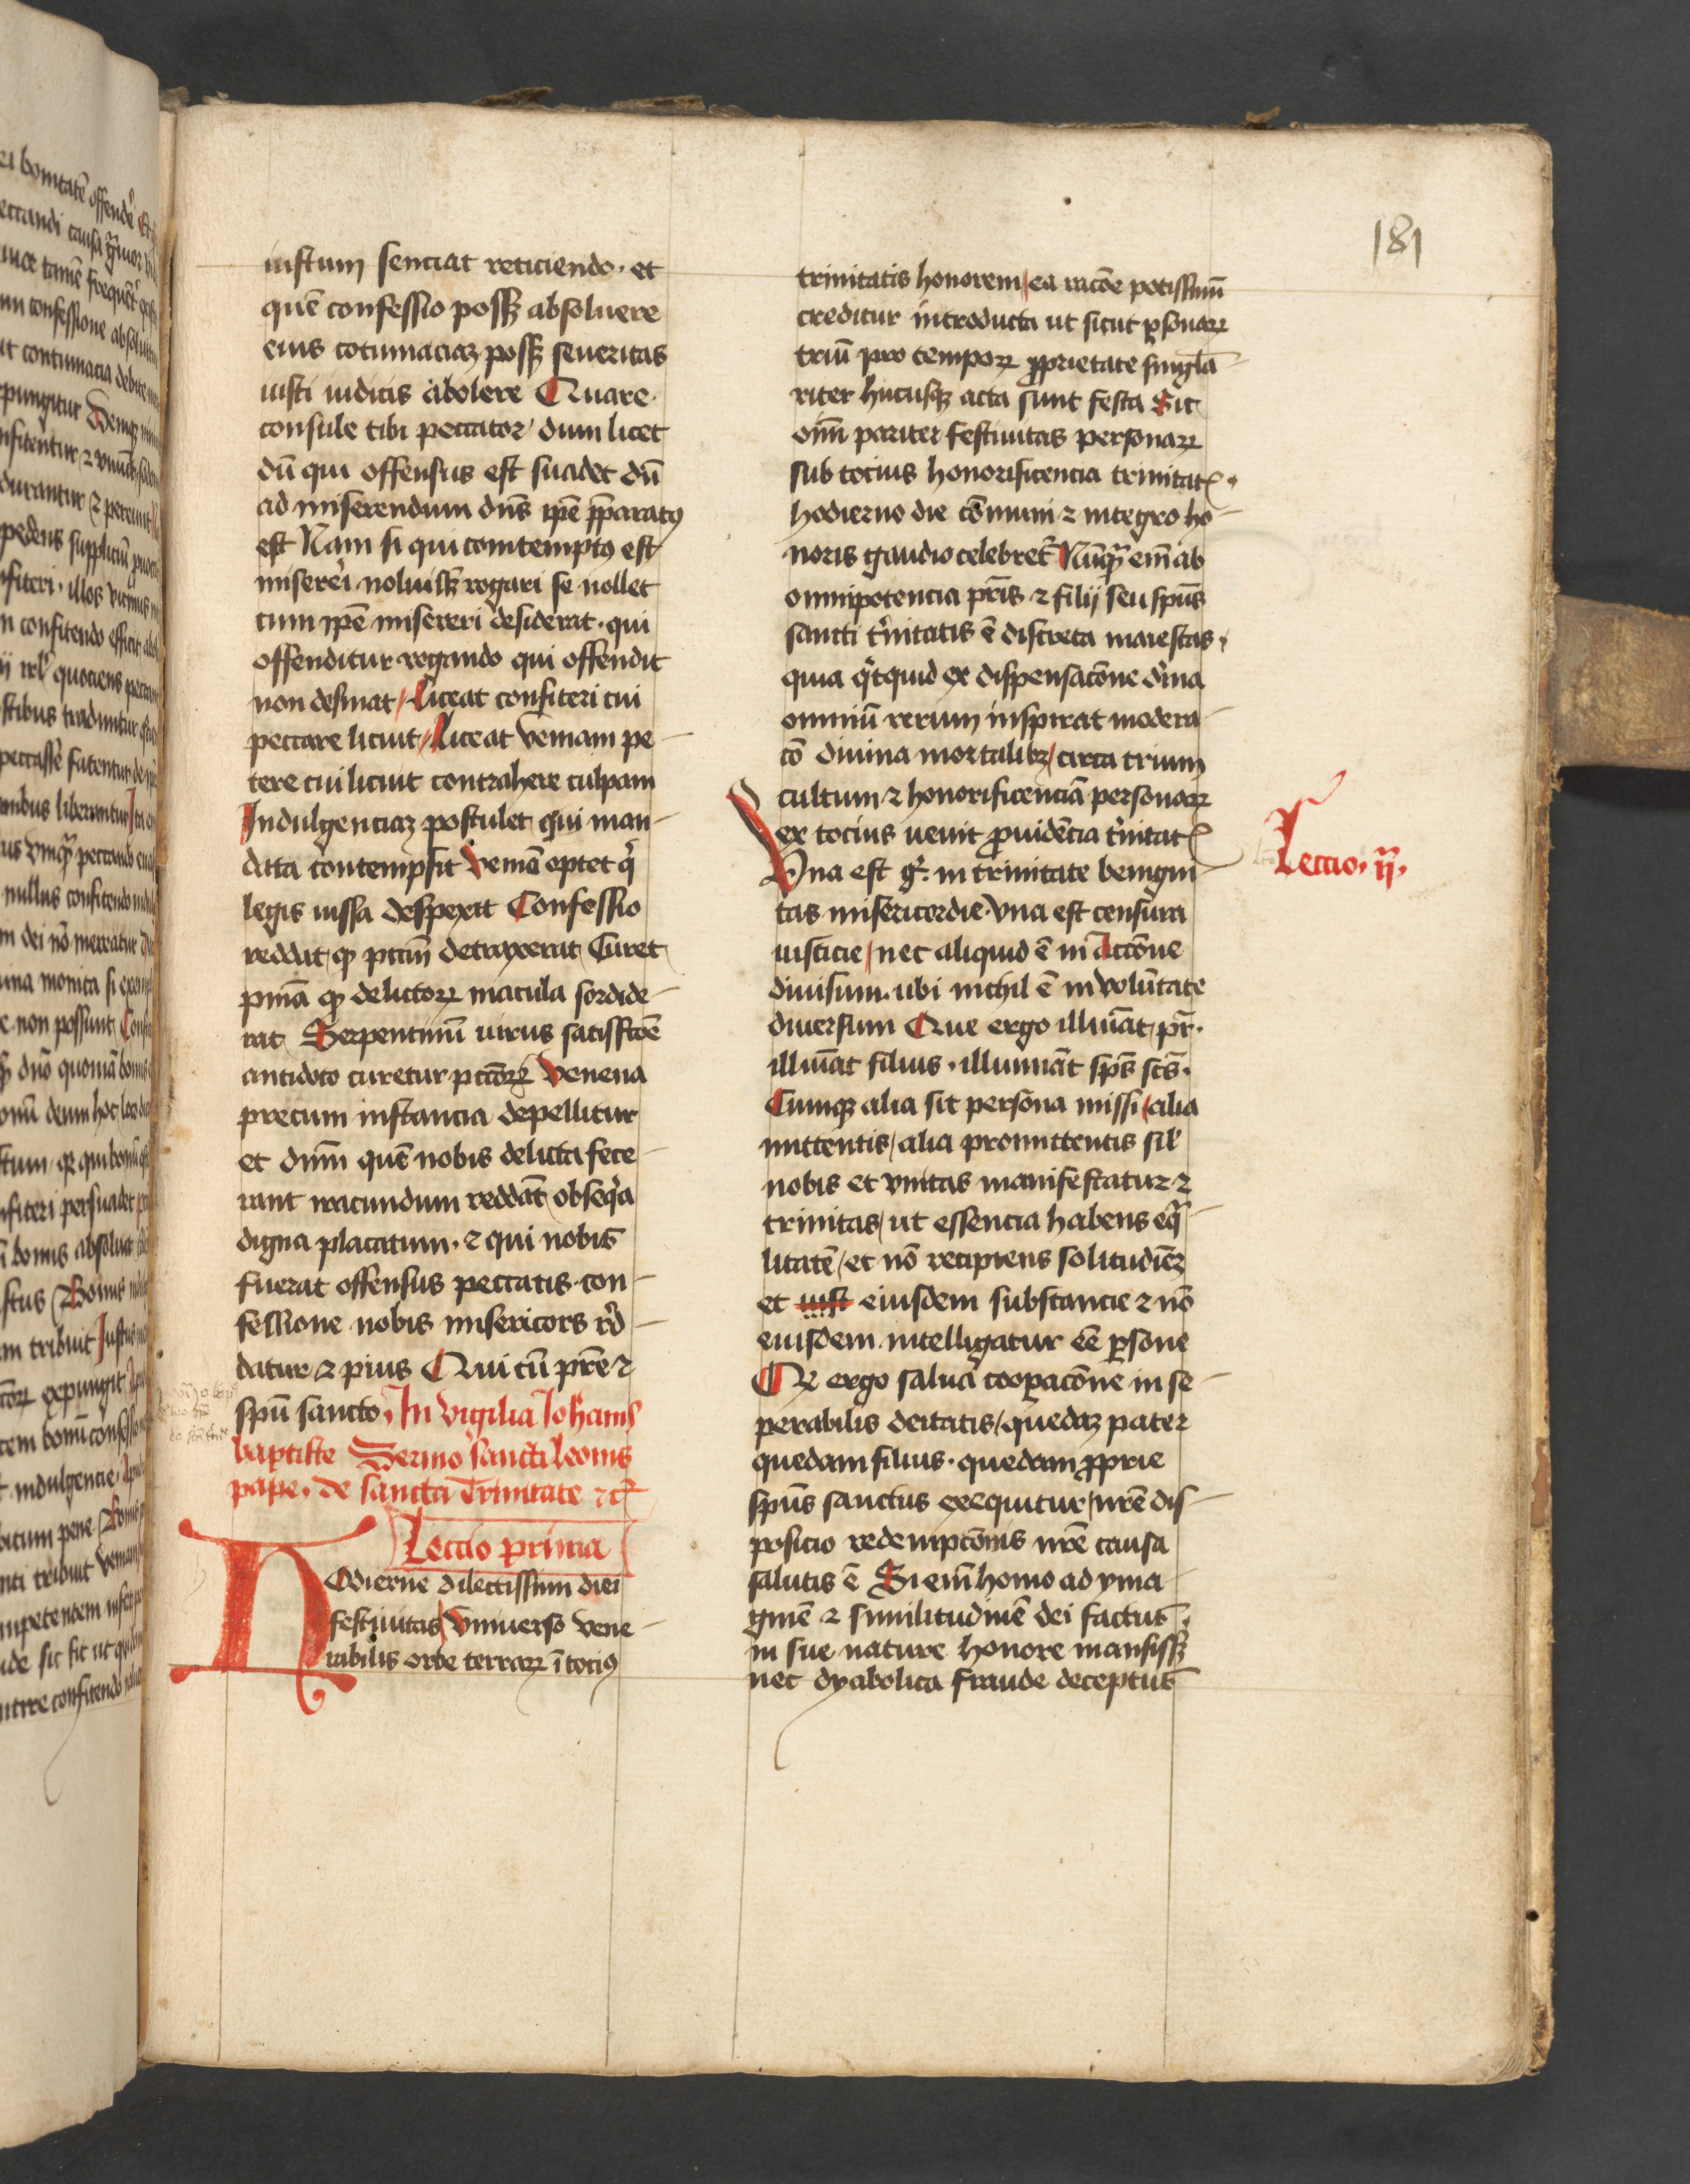 181
iustum senciat reticiendo · et
quē confessio possꝫ absoluere
eius cōtumaciaꝫ possꝫ seueritas
iusti iudicis abolere Quare
consule tibi peccator dum licet
dū qui offensus est suadet dū
ad miserendum dn̄s ip̄e p̄paratꝯ
est Nam si qui comtemptꝯ est
misereri noluisꝫ rogari se nollet
cum ip̄e misereri desiderat · qui
offenditur rogando qui offendit
non desinat / liceat confiteri cui
peccare licuit / liceat veniam pe-
tere cui licuit contrahere culpam
Indulgenciaꝫ postulet qui man-
data contempsit veniā optet qͥ
legis iussa despexit Confessio
reddat qꝫ pctm̄ detraxerat Curet
pn̄ia qꝫ delictoꝝ macula sordide-
rat Serpentinū uirus satisfcōē
antidoto curetur pctōꝝ venena
precum instancia depellitur
et dnm̄ quē nobis delicta fece-
rant iracundum reddāt obseqͥa
digna placatum · ⁊ qui nobis
fuerat offensus peccatis · con-
fessione nobis misericors rͥd-
datur ⁊ pius Qui cū pr̄e ⁊
spū sancto · In vigilia Johanis
baptiste Sermo sancti leonis
pape · de sancta Trinitate ⁊cͣ
Leccio prima
HOdierne dilectissimi diei
festiuitas / vniuerso vene-
rabilis orbe terraꝝ ī tociꝯ
trinitatis honorem / ea racōe potissimū
creditur introducta ut sicut ꝑsonaꝝ
triū pro tempoꝝ ꝓprietate singla-
riter hucusqꝫ acta sunt festa Sic
oim̄ pariter festiuitas personaꝝ
sub tocius honorificencia trinitatꝭ ·
hodierno die cōmuni ⁊ integro ho-
noris gaudio celebretͬ Nūqͣ em̄ ab
omnipotencia pr̄is ⁊ filij seu spūs
sancti tͥnitatis ē discreta maiestas ·
quia qͥcquid ex dispensacōne dͥuina
omniū rerum inspirat modera-
cō diuina mortalibꝫ / circa trium
cultum ⁊ honorificenciā personaꝝ
ex tocius uenit ꝓuidēcia tͥnitatꝭ
Vna est gͦ · in trinitate benigni-
tas misericordie · vna est censura
iusticie / nec aliquid ē in Accōne
diuisum · ubi nichil ē in volūtate
diuersum Que ergo illuīat pr̄ ·
illuīat filius · illumināt spūs scūs ·
Cumqꝫ alia sit persona missi / alia
mittentis / alia promittentis sil̄
nobis et vnitas manifestatur ⁊
trinitas / ut essencia habens eqͣ-
litatē / et nō recipiens solitudiēꝫ
et iust eiusdem substancie ⁊ nō
eiusdem intelligatur eē ꝑsone
Qꝫ ergo salua cooꝑacōne in se-
perabilis deitatis / quedaꝫ pater
quedam filius · quedam ꝓprie
spūs sanctus exequitur / nr̄e dis-
posicio redempcōnis nr̄e causa
salutis ē Si em̄ homo ad yma-
ginē ⁊ similitudinē dei factus ·
in sue nature honore mansissꝫ
nec dyabolica fraude deceptus
Leccio · ij ·